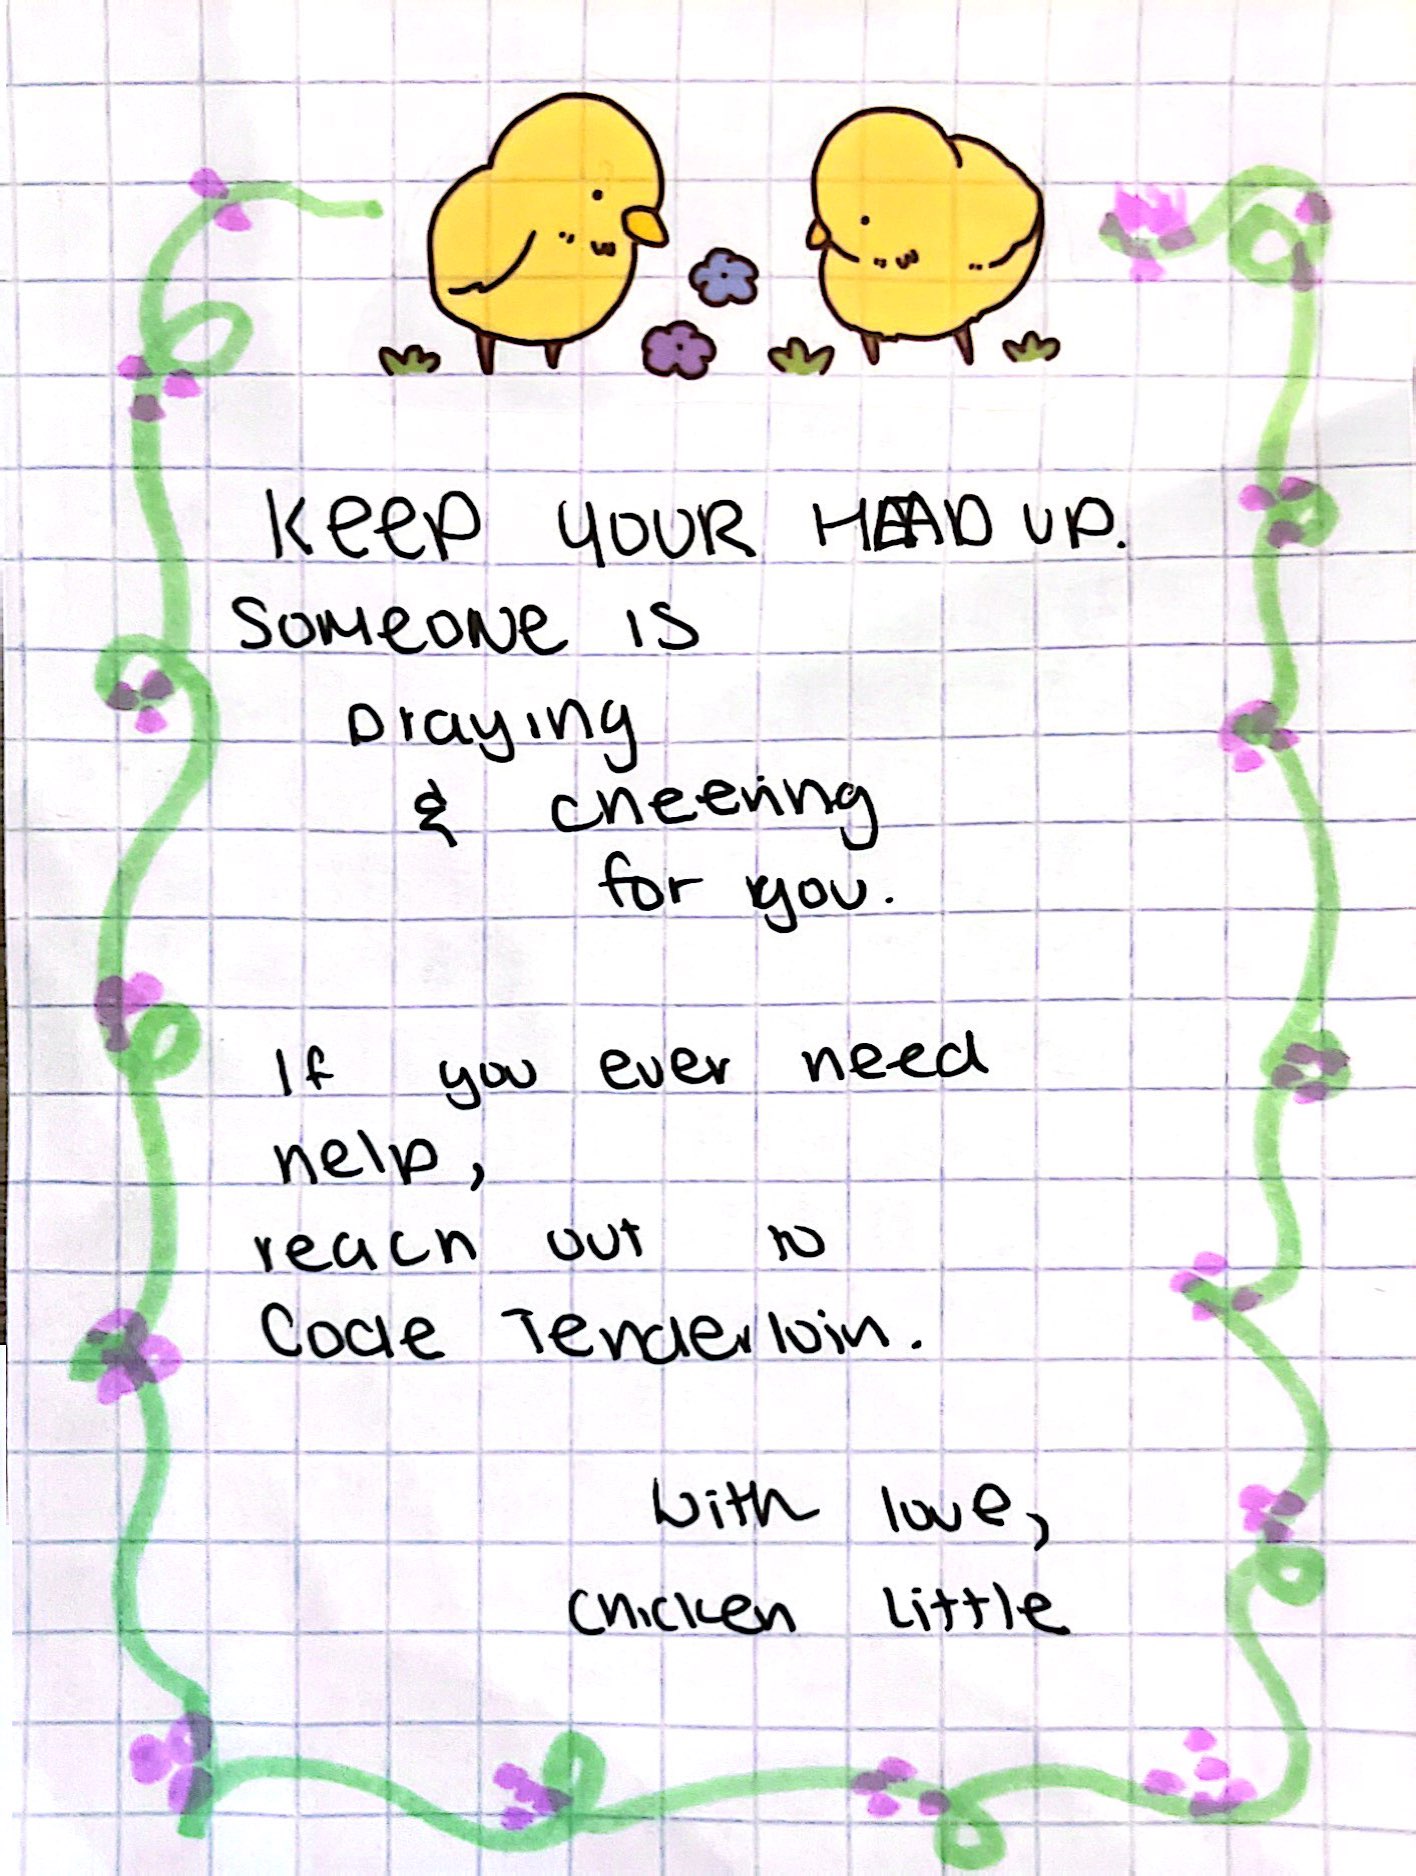 KEEP YOUR HEAD UP.
SOMEONE IS
praying
& cheering
for you.
If you ever need
help,
reach out to
Code Tenderloin.
with love,
chicken Little